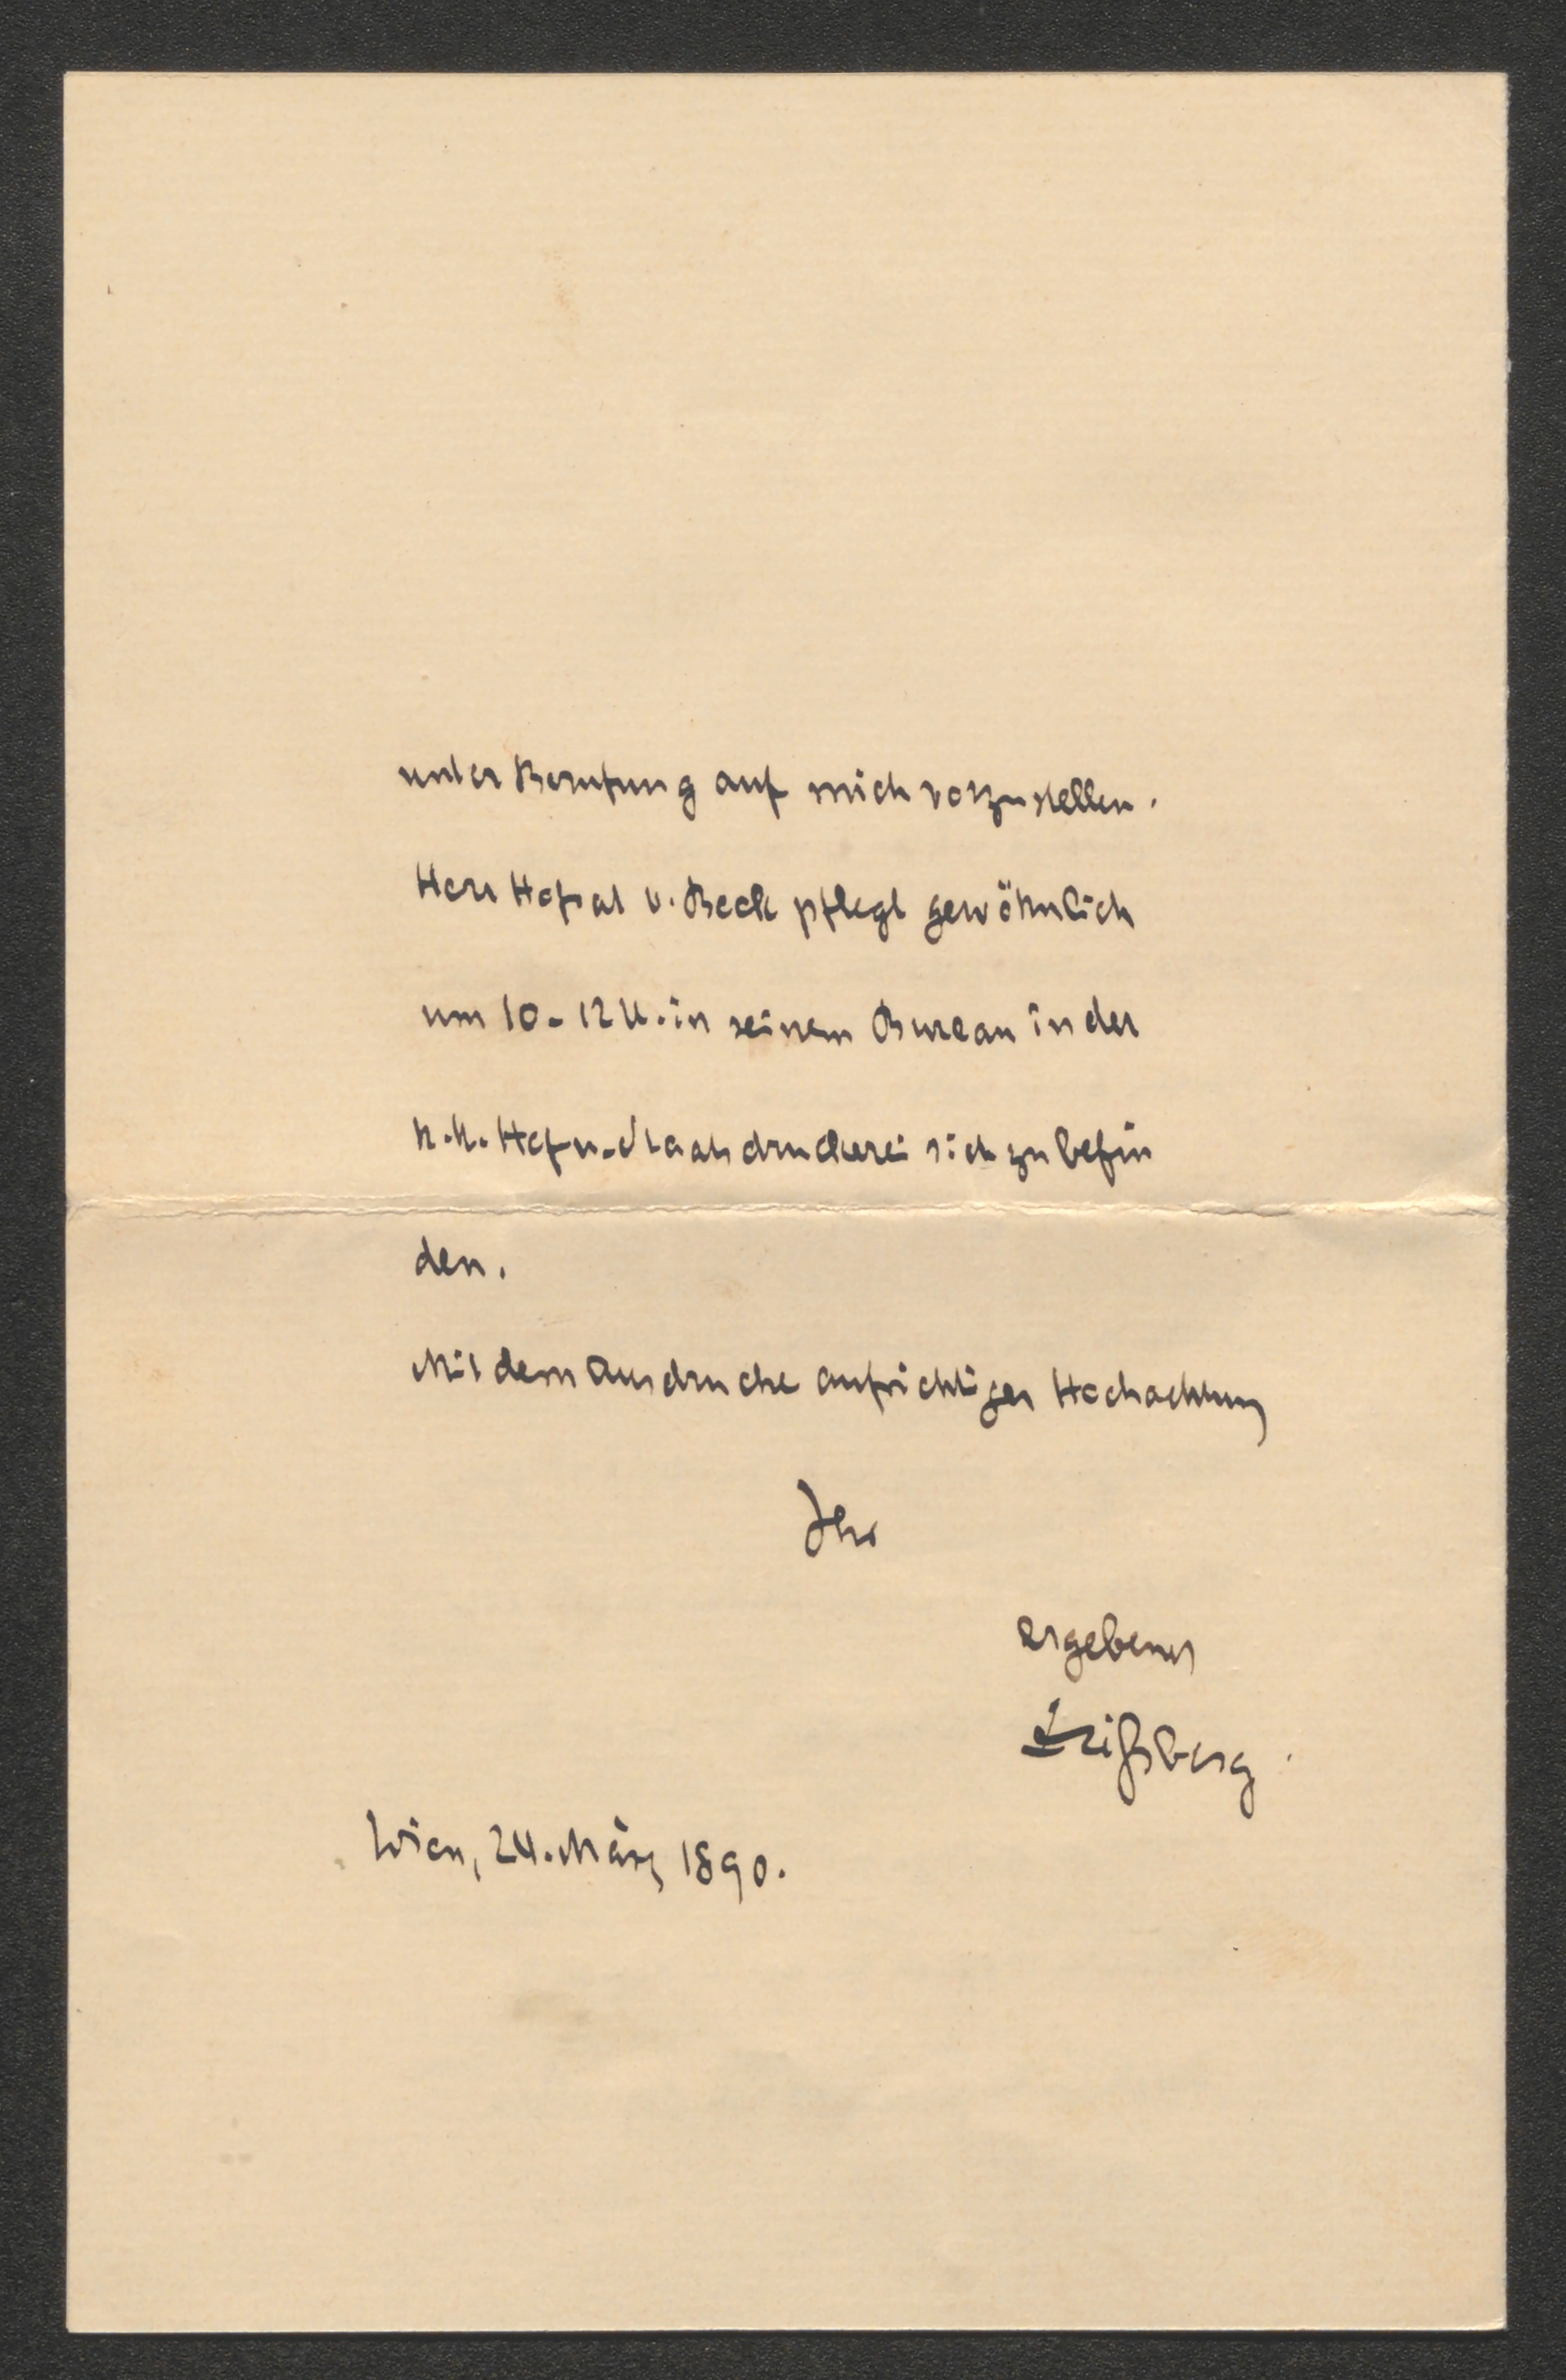 unter Berufung auf mich vorzustellen.
Herr Hofrat v. Beck pflegt gewöhnlich
um 10-12 U. in seinem Bureau in der
k.k. Hof u. Staatsdruckerei sich zu befin
den.
Mit dem Ausdrucke aufrichtiger Hochachtung
Ihr
ergebener
Zeißberg.
Wien, 24. März 1890.